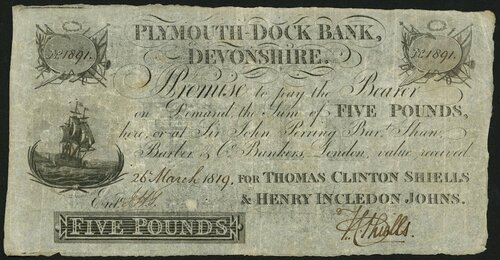 PLYMOUTH-DOCK BANK,
DEVONSHIRE.
No. 1891. No. 1891.
I Promise to pay the Bearer
on Demand, the Sum of FIVE POUNDS,
here, or at Sir John Perring Bart. Shaw,
Barber & Co. Bankers, London, value received
26 March 1819. FOR THOMAS CLINTON SHIELLS
Entd & HENRY INCLEDON JOHNS.
FIVE POUNDS Shiells.